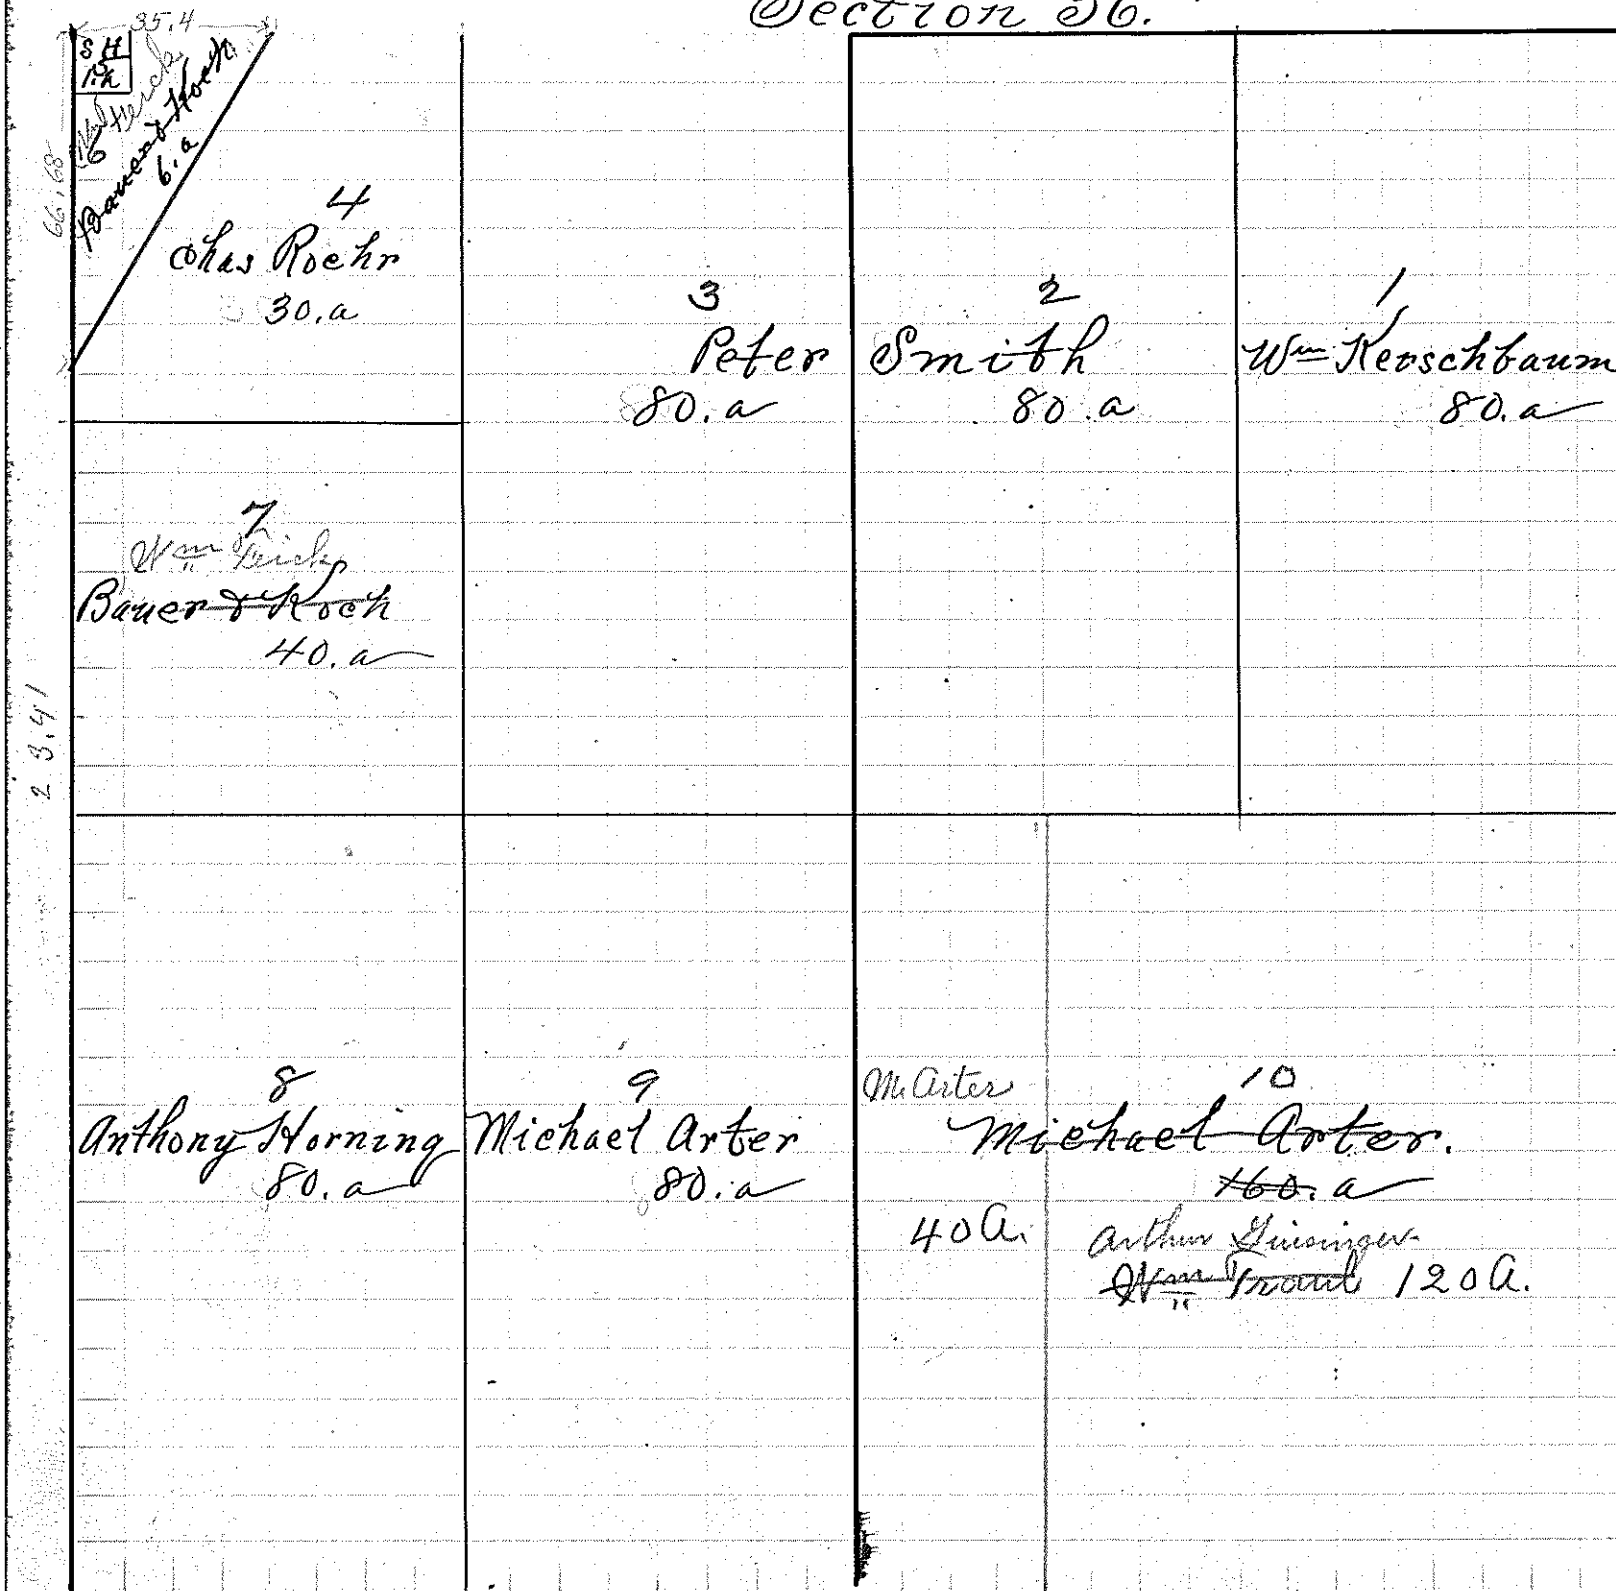 Section 36.
35.4
S H
66.68
6
Bauer & Koch
6.a
4
Chas Roehr
30.a
3
Peter
80.a
2
Smith
80.a
1
Wm Kerschbaum
80.a
7
Wm Feick
Bauer & Koch
40.a
23.41
8
Anthony Horning
80.a
9
Michael Arter
80.a
M. Arter
10
Michael Arter.
160.a
40 A.
Arthur
Wm 120 A.